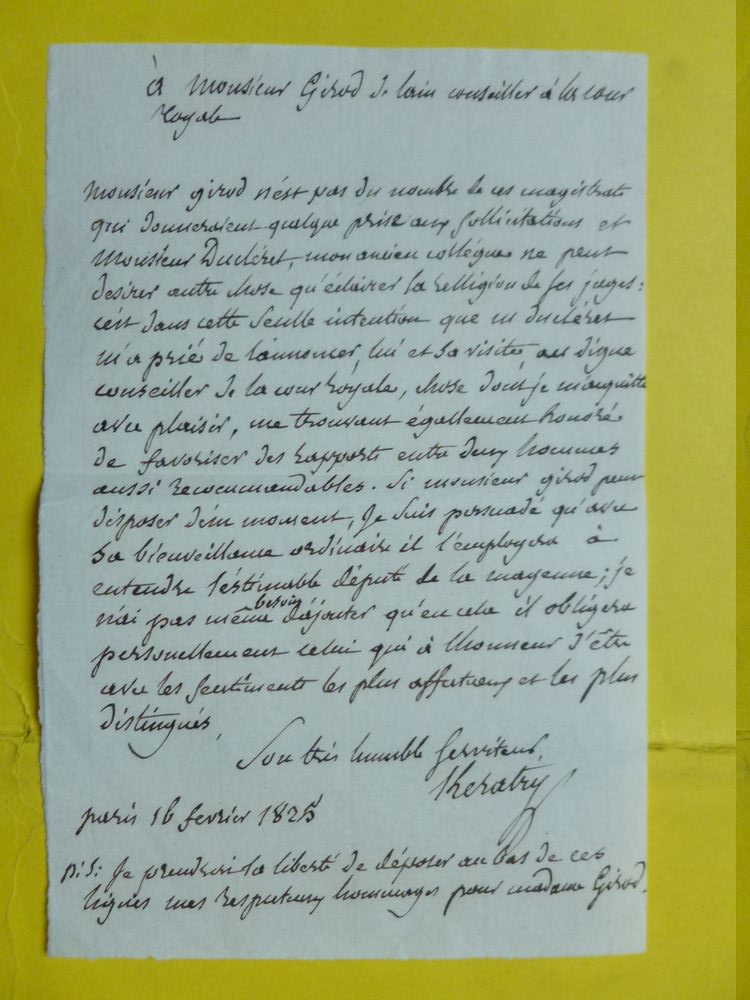 à Monsieur Girod de lain conseiller à la cour
royale
Monsieur girod n'est pas du nombre de ces magistrats
qui donneraient quelque prise aux sollicitations et
Monsieur Ducléret, mon ancien collégue ne peut
desirer autre chose qu'éclairer la relligion de ses juges:
c'est dans cette seulle intention que m ducléret
m'a prié de l'annoncer, lui et sa visite, au digne
conseiller de la cour royale, chose dont je m'acquitte
avec plaisir, me trouvant égallement honoré
de favoriser des rapports entre deux hommes
aussi recommandables. Si monsieur girod peut
disposer d'un moment, je suis persuadé qu'avec
sa bienveillance ordinaire il l'employera à
entendre l'éstimable député de la mayenne; je
n'ai pas même besoin d'ajouter qu'en cela il obligera
personellement celui qui à lhonneur d'être
avec les sentiments les plus affectueux et les plus
distingués,
Son très humble serviteur,
Keratry
paris 16 fevrier 1825
P.S: Je prendrai la liberté de déposer au bas de ces
lignes mes respectueux hommages pour madame Girod.